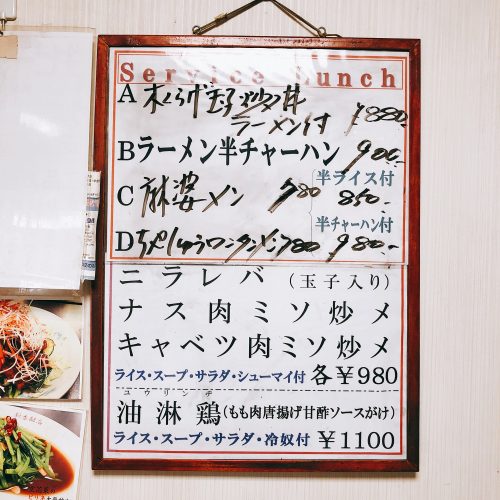 Service Lunch
A 木くらげ玉子炒丼
ラーメン付 ¥880-
Bラーメン半チャーハン 900-
半ライス付
C 麻婆メン 780 850-
半チャーハン付
Dちゃしゅうワンタンメン780 980-
ニラレバ(玉子入り)
ナス肉ミソ炒メ
キャベツ肉ミソ炒メ
ライス・スープ・サラダ・シューマイ付 各¥980
ユウリンチ
油淋鶏(もも肉唐揚げ甘酢ソースがけ)
ライス・スープ・サラダ・冷奴付 ¥1100